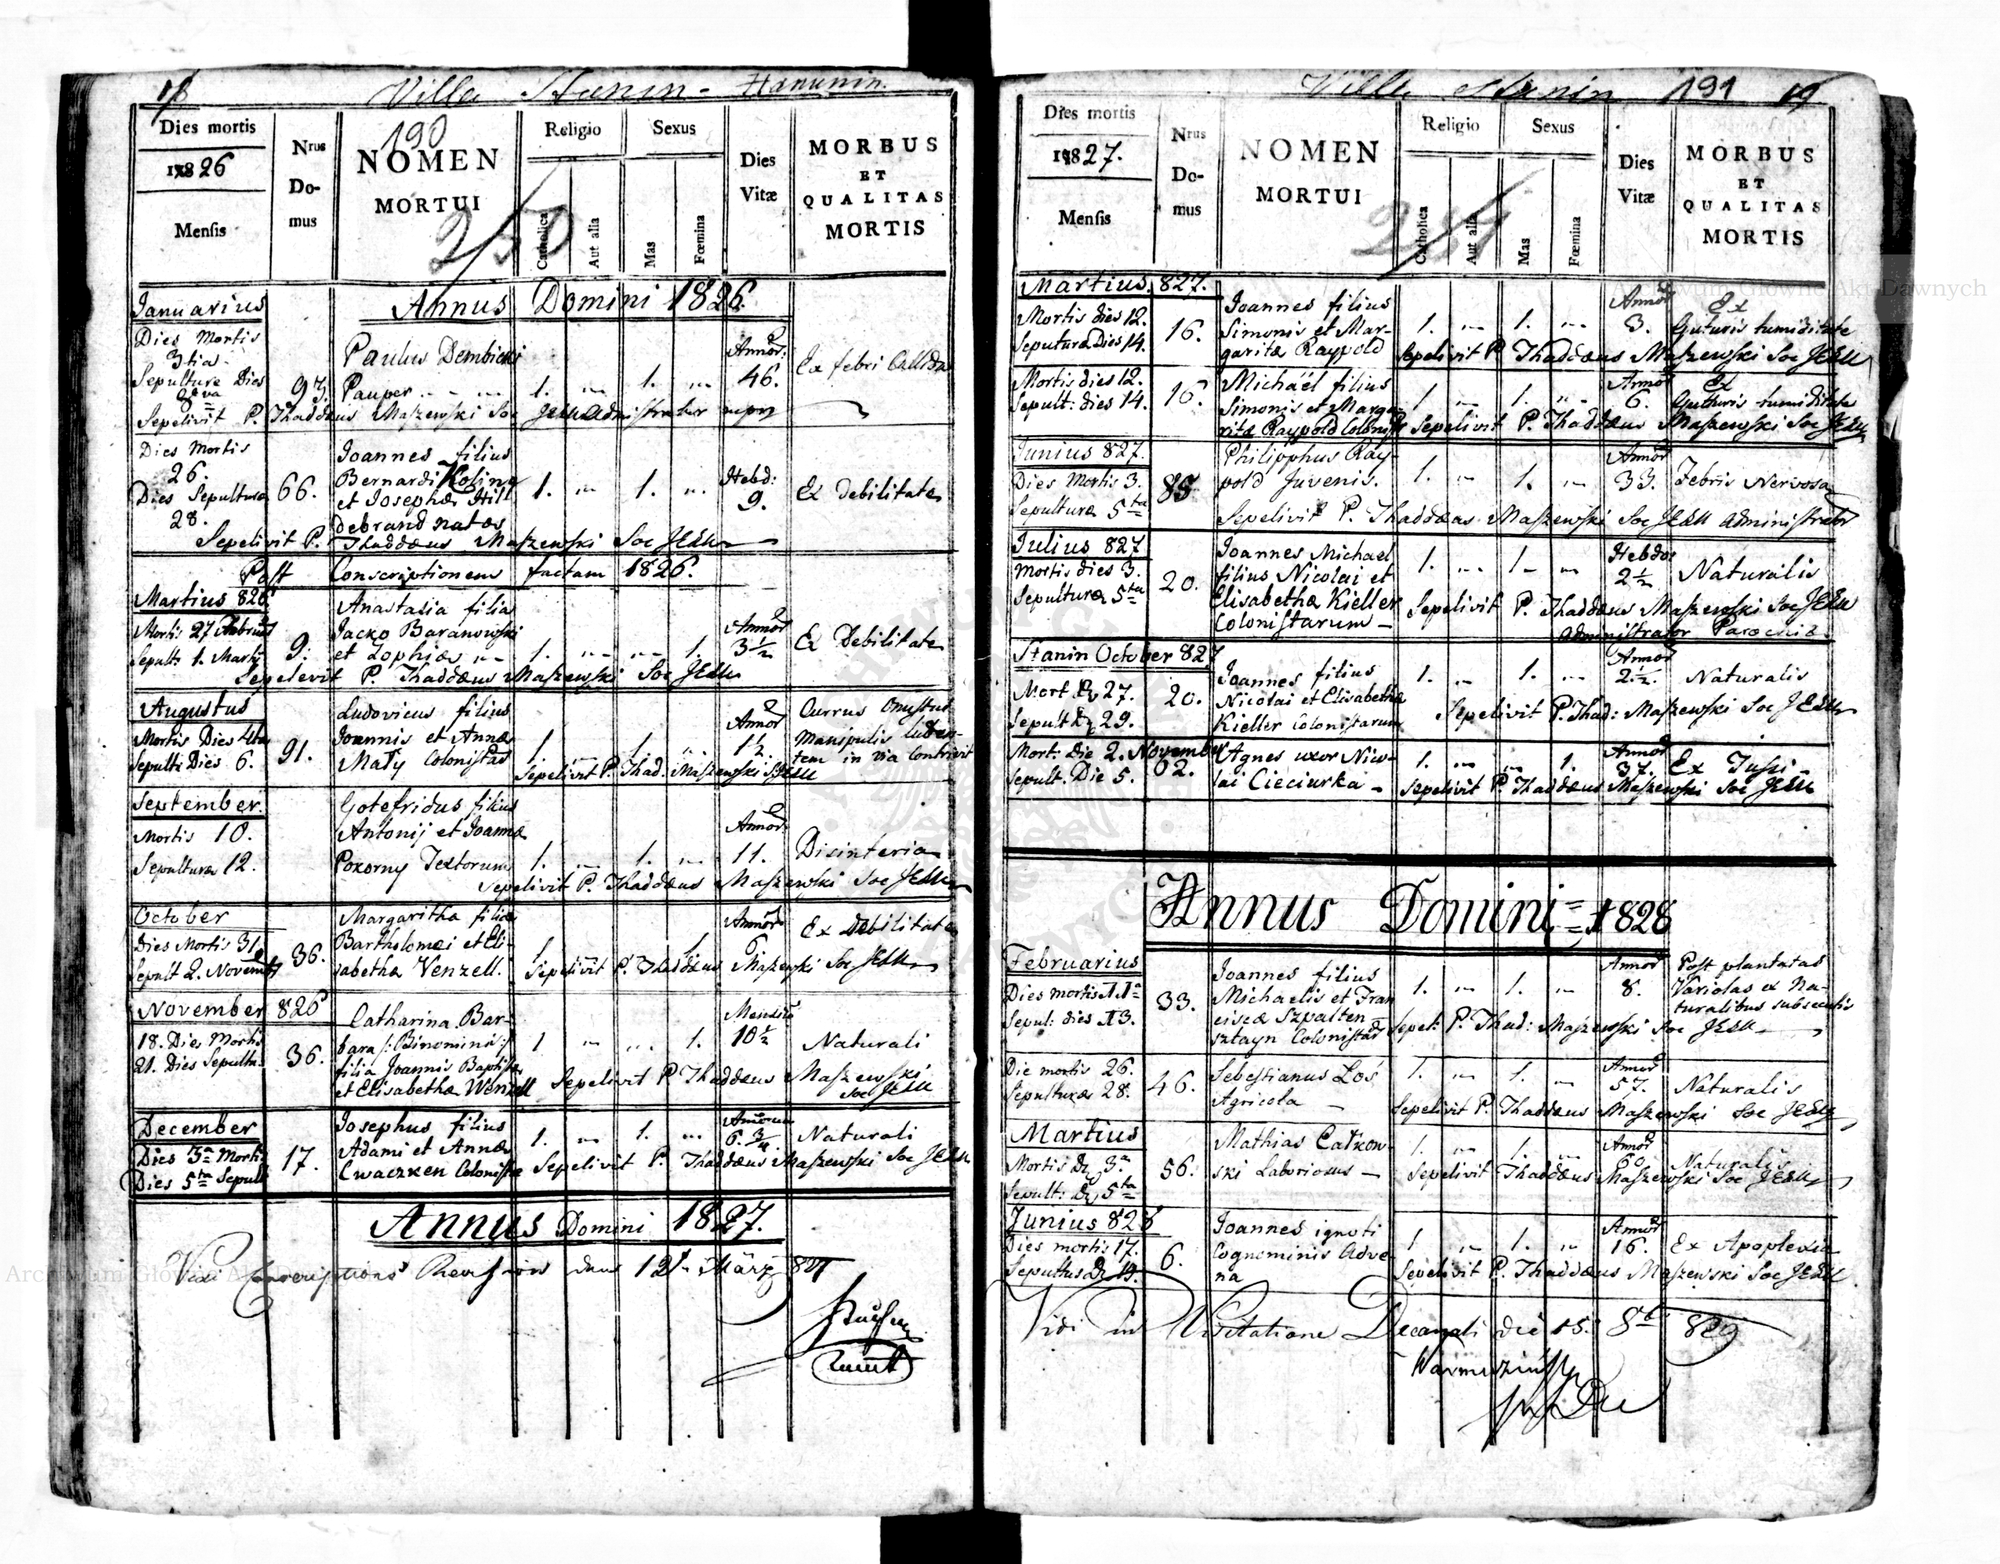 18 Villa Stanin - Hanunin.
190
Dies mortis
1826
Mensis
Nrus Domus
NOMEN
MORTUI
250
Religio
Catholica
Aut alia
Sexus
Mas
Fœmina
Dies
Vitæ
MORBUS
ET
QUALITAS
MORTIS
Januarius
Annus Domini 1826.
Dies Mortis
3tia
Sepulturæ Dies
8va
93.
Paulus Dembicki
Pauper
1. 1.
Annor.
46.
Ex febri Callida
Sepelivit P. Thaddæus Maszewski Soc Jesu Administrator mpp
Dies Mortis
26.
Dies Sepulturæ
28.
66.
Joannes filius
Bernardi Koling
et Josephæ Hill
debrand natæ
1. 1.
Hebd:
9.
Ex Debilitate
Sepelivit P. Thaddæus Maszewski Soc JESU
Post Conscriptionem factam 1826.
Martius 826
Mortis 27 Febru
Sepult: 1. Marty
9.
Anastasia filia
Jacko Baranowski
et Zophiæ
1. 1.
Annor
3 1/2
Ex Debilitate
Sepelivit P. Thaddæus Maszewski Soc JESU
Augustus
Mortis Dies 4ta
Sepult: Dies 6.
91.
Ludovicus filius
Joannis et Annæ
Mały Colonistar
1 1
Annor
1 1/2
Currus Onustus
Manipulis luden-
tem in via Contrivit
Sepelivit P. Thad: Maszewski S JESU
September.
Mortis 10.
Sepulturæ 12.
Gotefridus filius
Antonij et Joannæ
Pokorny Textorum
1. 1.
Annor
11.
Disinteria
Sepelivit P. Thaddæus Maszewski Soc JESU
October
Dies Mortis 31
Sepult 2. Novemb
36.
Margaritha filia
Bartholomei et Eli-
sabetha Venzell.
1 1
Annor
6
Ex Debilitate
Sepelivit P. Thaddæus Maszewski Soc JESU
November 826
18. Dies Mortis
21. Dies Sepultu.
36.
Catharina Bar-
bara /: Binominis :/
filia Joannis Baptistæ
et Elisabetha Wenzell
1 1.
Mensiu
10 1/2
Naturali
Sepelivit P Thaddæus Maszewski
Soc JESU
December
Dies 3a Mortis
Dies 5ta Sepult
17.
Josephus filius
Adami et Annæ
Cwaczken Colonistæ
1. 1.
6. 3/4
Naturali
Sepelivit P. Thaddæus Maszewski Soc JESU
Annus Domini 1827.
Vidi Conscriptions Revision den 12t März 827
Villa Stanin 191 19
Dies mortis
1827.
Mensis
Nrus Domus
NOMEN
MORTUI
Religio
Catholica
Aut alia
Sexus
Mas
Fœmina
Dies
Vitæ
MORBUS
ET
QUALITAS
MORTIS
Martius 827.
Mortis dies 12.
Seputuræ Dies 14.
16.
Joannes filius
Simonis et Mar-
garitæ Raypold
1. 1.
Annor
3.
Ex
Guturis tumiditate
Sepelivit P. Thaddæus Maszewski Soc JESU
Mortis dies 12.
Sepult: dies 14.
16.
Michaël filius
Simonis et Marga-
ritæ Raypold Colonist
1 1
Annor
6.
Ex
Guturis tumiditate
Sepelivit P. Thaddæus Maszewski Soc JESU
Junius 827.
Dies Mortis 3.
Sepulturæ 5ta
85
Philipphus Ray-
pold Juvenis.
1. 1.
Annor
33.
Febris Nervosa
Sepelivit P. Thaddæus Maszewski Soc JESU Administrator
Julius 827
Mortis dies 3.
Sepulturæ 5ta
20.
Joannes Michael
filius Nicolai et
Elisabetha Kieller
Colonistarum
1. 1
Hebdo
2 1/2
Naturalis
Sepelivit P. Thaddæus Maszewski Soc JESU
Administrator Parochiæ.
Stanin October 827
Mort. D 27.
Sepult D 29.
20.
Joannes filius
Nicolai et Elisabetha
Kieller Colonistarum
1. 1.
Annor
2 1/2.
Naturalis
Sepelivit P. Thad: Maszewski Soc JESU
Mort. Die 2. November
Sepult. Die 5.
62.
Agnes uxor Nico-
lai Cieciurka
1. 1.
Annor
37.
Ex Tussi
Sepelivit P Thaddæus Maszewski Soc JESU
Annus Domini 1828
Februarius
Dies mortis 11a
Sepul: dies 13.
33.
Joannes filius
Michaelis et Fran
ciscæ Szpalten
sztayn Colonistar
1. 1.
Annor
8.
Post plantatas
Variolas ex Na-
turalibus subsecutis
Sepel: P. Thad: Maszewski Soc JESU
Die mortis 26.
Sepulturæ 28.
46.
Sebestianus Łoś
Agricola
1. 1.
Annor
57.
Naturalis
Sepelivit P. Thaddæus Maszewski Soc JESU
Martius
Mortis D 3a
Sepult: D 5ta
56.
Mathias Całkow
ski Laboriosus
1 1.
Annor
60
Naturalis
Sepelivit Thaddæus Maszewski Soc JESU
Junius 828
Dies mortis 17.
Sepultus D 19.
6.
Joannes ignoti
Cognominis Adve-
na
1 1.
Annor
16.
Ex Apoplexia
Sepelivit P. Thaddæus Maszewski Soc JESU
Vidi in Visitatione Decanali die 15. 8b 829
Archiwum Główne Akt Dawnych
Archiwum Główne Akt Dawnych